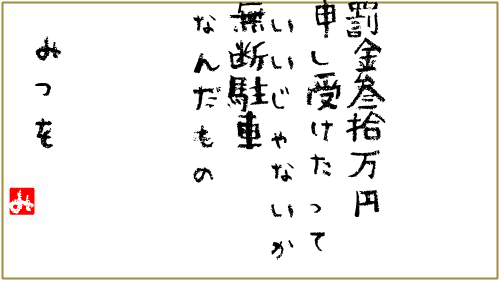 罰金叄拾万円
申し受けたって
いいじゃないか
無断駐車
なんだもの
みつを
み